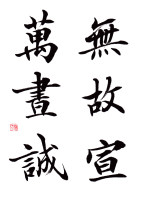 無故宣
萬晝誠